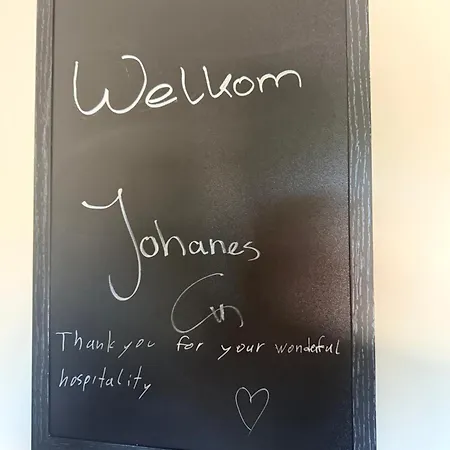 Welkom
Johanes
Thank you for your wonderful
hospitality